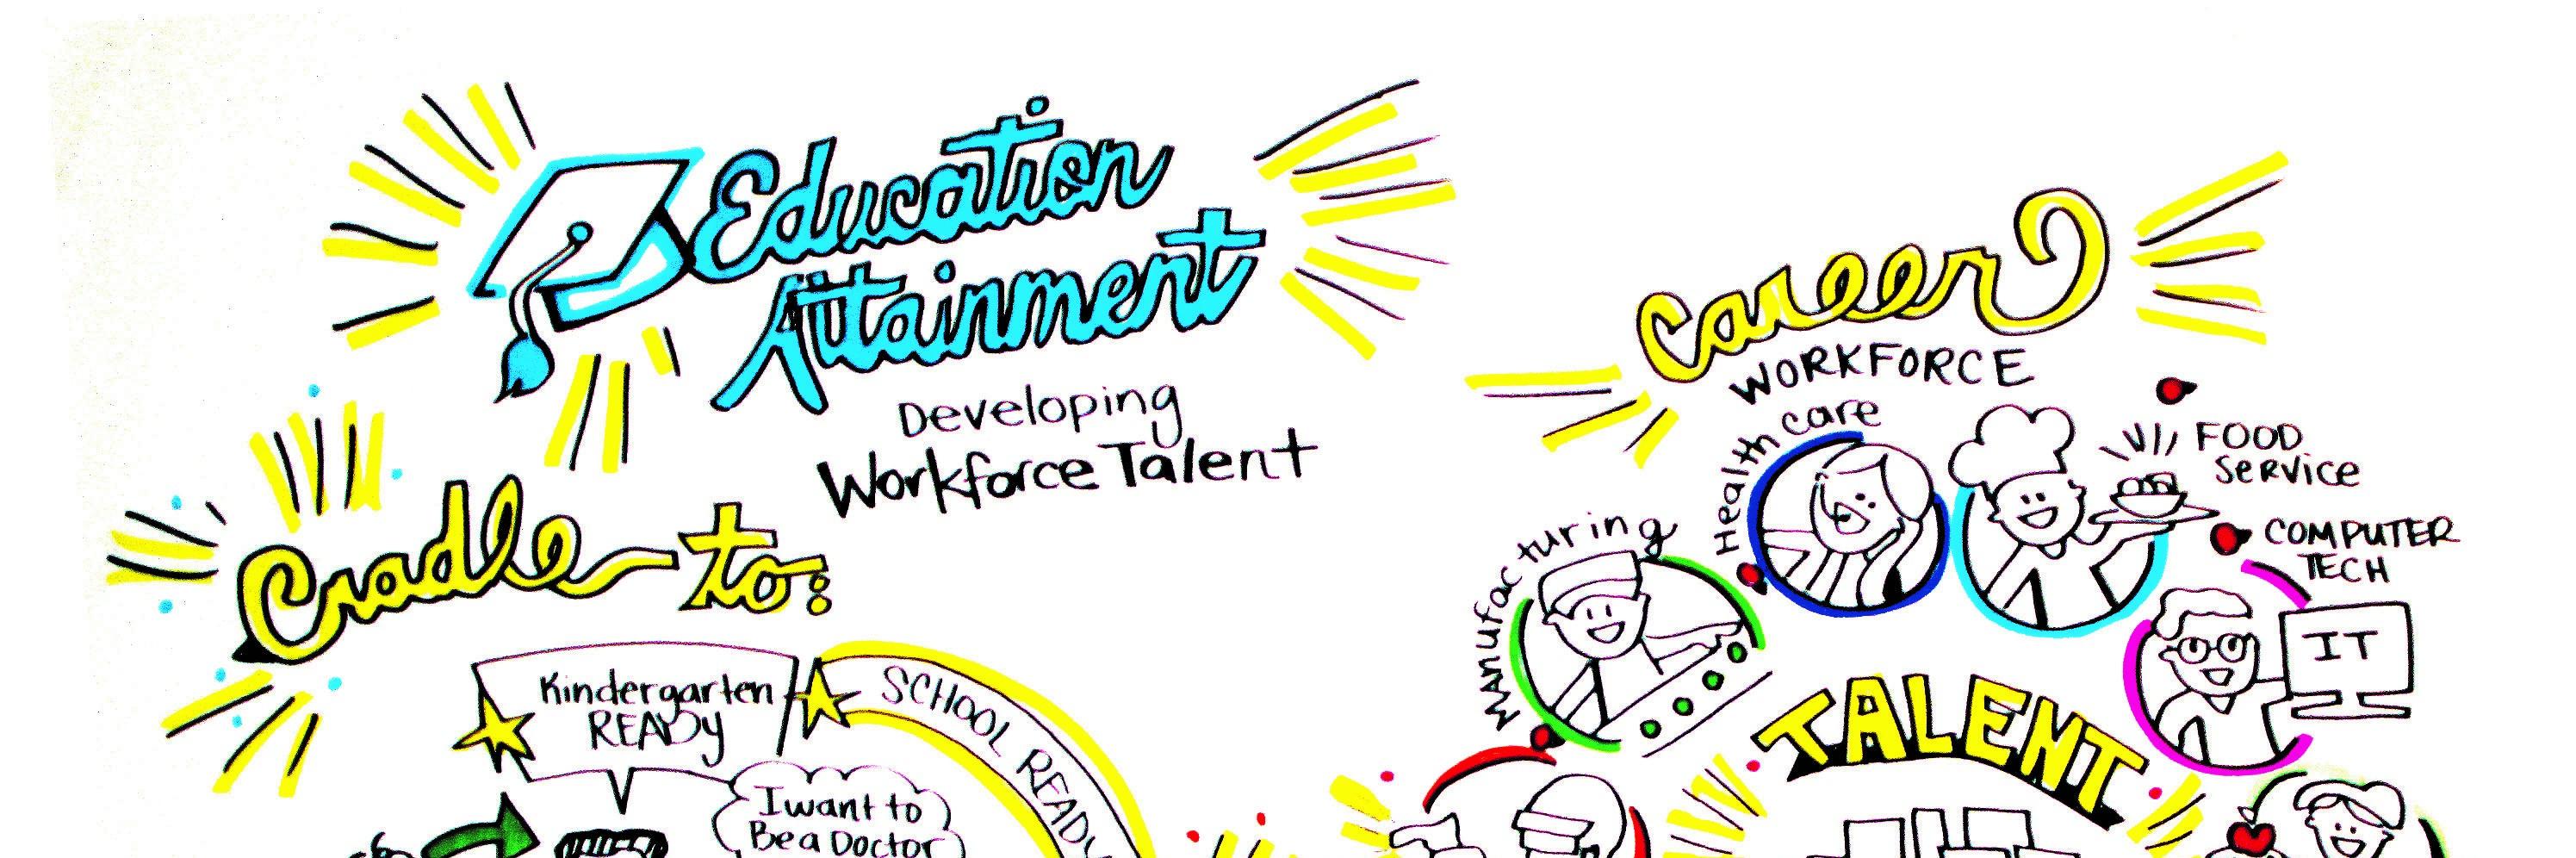 Education
Attainment
Developing
Workforce Talent
Cradle to:
Kindergarten
READY
SCHOOL READY
I want to
Be a Doctor
Career
WORKFORCE
Health care
FOOD
Service
Manufacturing
COMPUTER
TECH
IT
TALENT